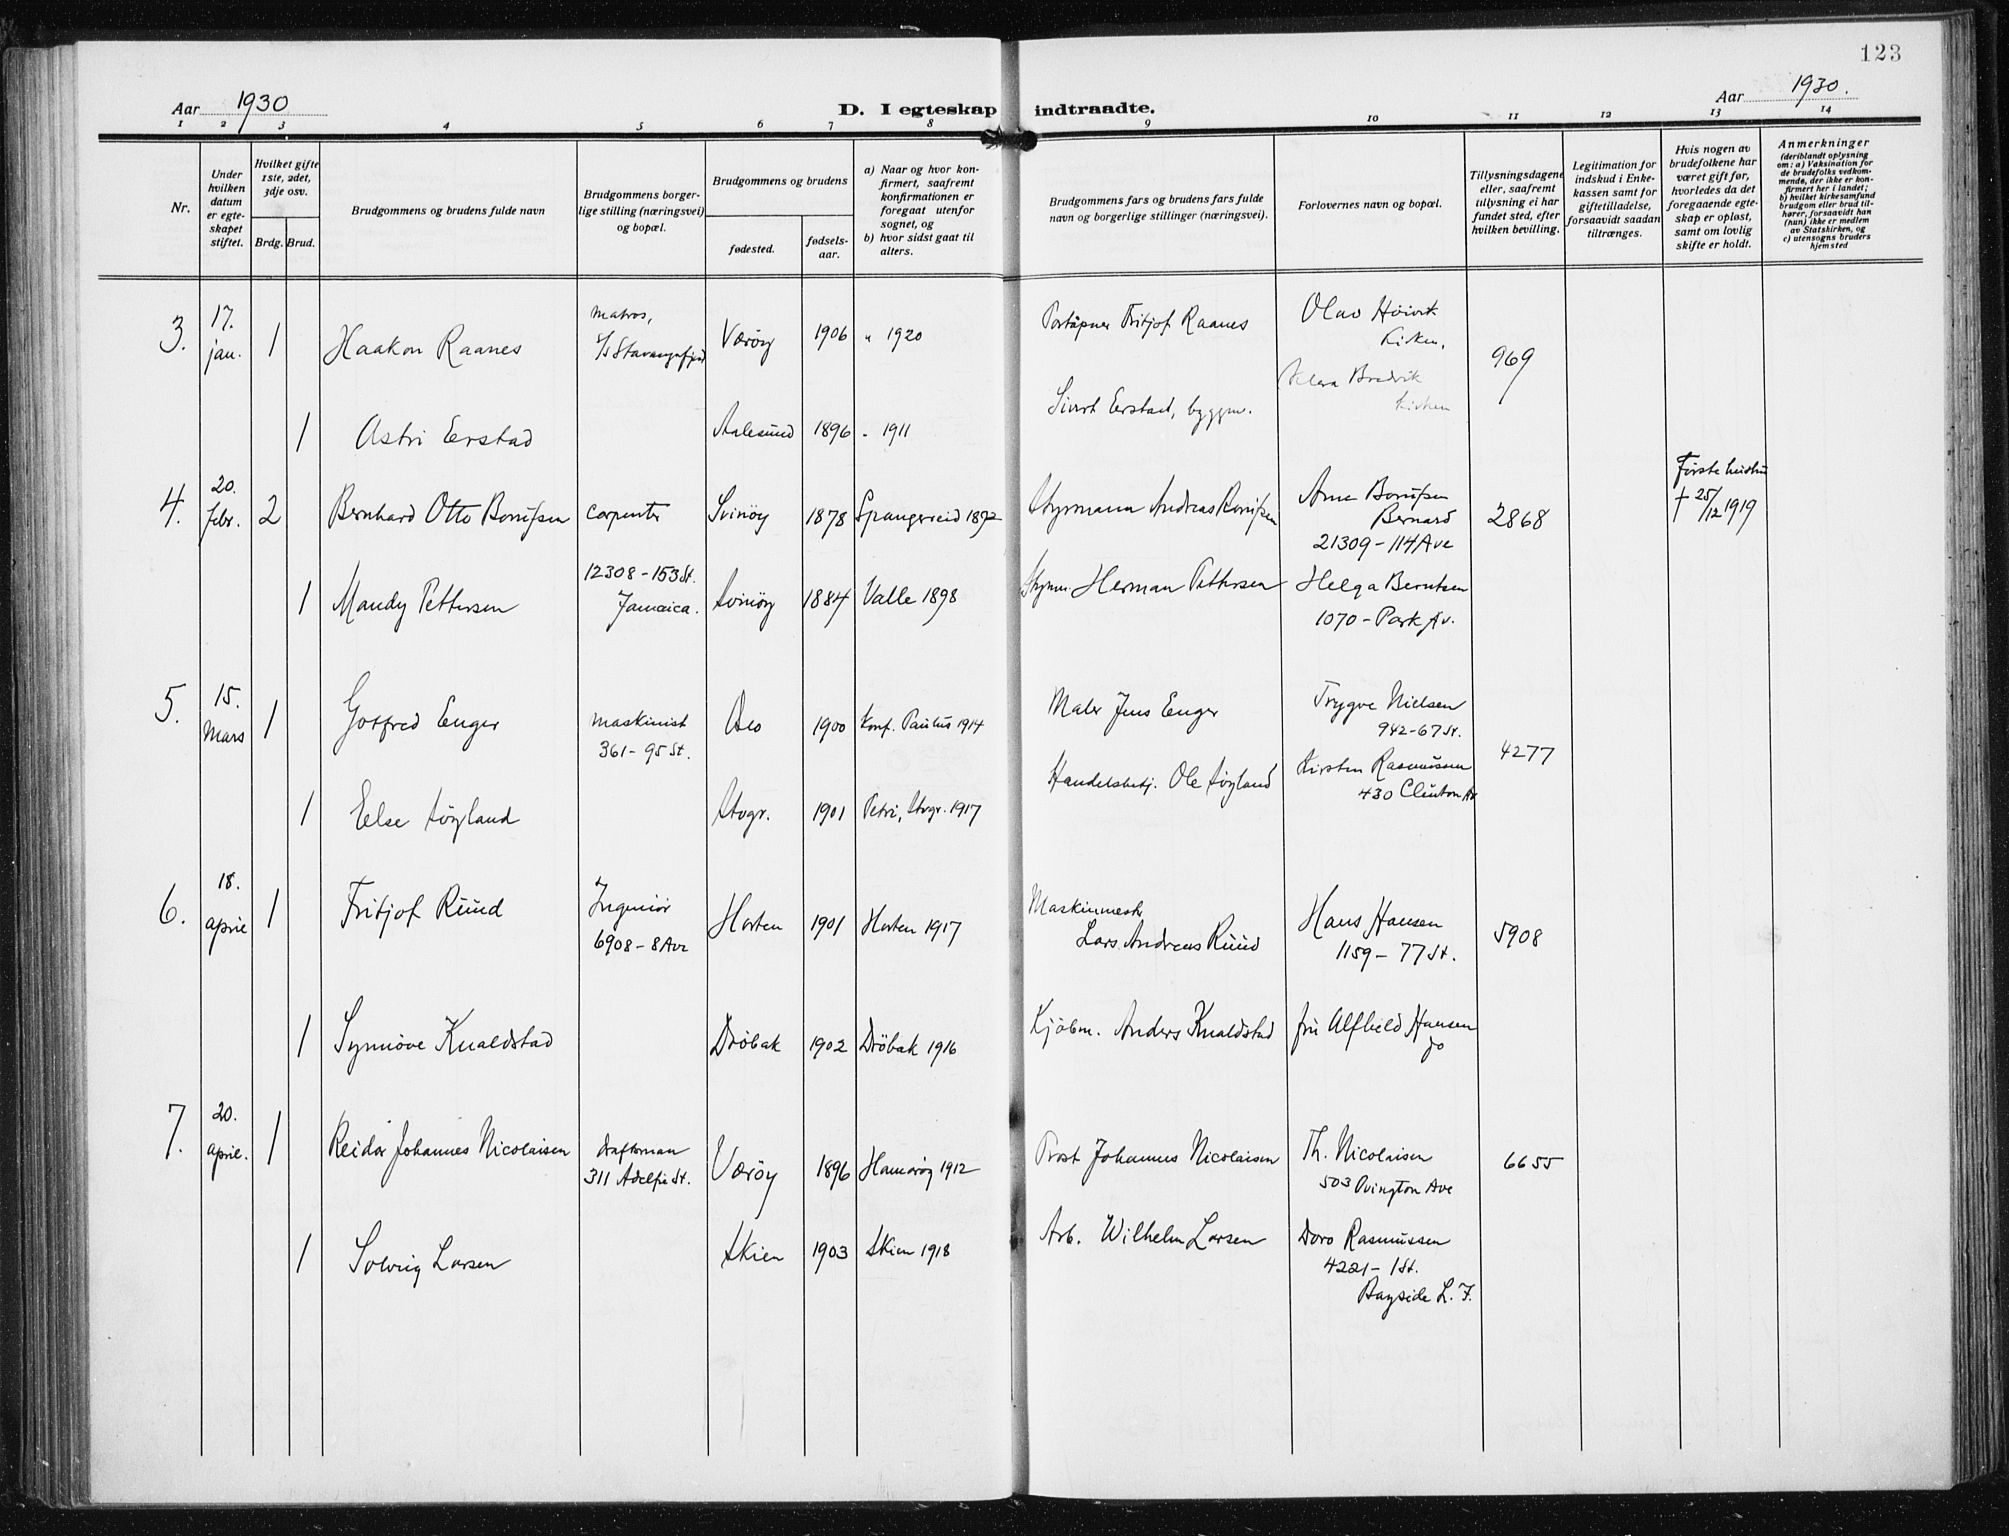 123
Aar 1930
D. I egteskap indtraadte.
Aar 1930.
1 2 3 4 5 6 7 8 9 10 11 12 13 14
Nr.
Under
hvilken
datum
er egte-
skapet
stiftet.
Hvilket gifte
1ste, 2det,
3dje osv.
Brdg. Brud.
Brudgommens og brudens fulde navn
Brudgommens borger-
lige stilling (næringsvei)
og bopæl.
Brudgommens og brudens
fødested.
fødsels-
aar.
a) Naar og hvor kon-
firmert, saafremt
konfirmationen er
foregaat utenfor
sognet, og
b) hvor sidst gaat til
alters.
Brudgommens fars og brudens fars fulde
navn og borgerlige stillinger (næringsvei).
Forlovernes navn og bopæl.
Tillysningsdagene
eller, saafremt
tillysning ei har
fundet sted, efter
hvilken bevilling.
Legitimation for
indskud i Enke-
kassen samt for
giftetilladelse,
forsaavidt saadan
tiltrænges.
Hvis nogen av
brudefolkene har
været gift før,
hvorledes da det
foregaaende egte-
skap er opløst,
samt om lovlig
skifte er holdt.
Anmerkninger
(deriblandt oplysning
om: a) Vaksination for
de brudefolks vedkom-
mende, der ikke er kon-
firmert her i landet;
b) hvilket kirkesamfund
brudgom eller brud til-
hører, forsaavidt han
(hun) ikke er medlem
av Statskirken, og
c) utensogns bruders
hjemsted
3. 17. jan. 1 Haakon Raanes
Matros,
S/S Stavangerfjord
Værøy 1906 " 1920
Portåpner Fritjof Raanes
Olav Höivik
Kirken.
969
1 Astri Eerstad Aalesund 1896 " 1911
Sivert Eerstad, byggm.
Bredvik
Kirken
4. 20. febr. 2 Bernhard Otto Berntsen carpenter Svinöy 1878 Spangereid 1892
Styrmann Andreas Berntsen
Arne Berntsen
Bernard
21309 - 114 Ave
2868
Første hustru
† 25/12 1919
1 Mandy Pettersen
12308 - 153 St.
Jamaica.
Svinöy 1884 Valle 1898
Styrm. Herman Pettersen
Helga Berntsen
1070 - Park Av.
5. 15. Mars 1 Gotfred Enger
maskinist
361 - 95 St.
Oslo 1900 Konf. Paulus 1914
Maler Jens Enger
Trygve Nielsen
942 - 67 St.
4277
1 Else Söyland Stvgr. 1901 Petri, Stvgr. 1917
Handelsbetj. Ole Söyland
Kirsten Rasmussen
430 Clinton Av
6. 18. april 1 Fritjof Ruud
Ingeniör
6908 - 8 Ave
Horten 1901 Horten 1917
Maskinmestr
Lars Andreas Ruud
Hans Hansen
1159 - 77 St.
5908
1 Synnöve Knaldstad Dröbak 1902 Dröbak 1916
Kjöbm. Anders Knaldstad
fru Alfhild Hansen
do
7. 20. april. 1 Reidar Johannes Nicolaisen
draftsman
311 Adelfi St.
Værøy 1896 Hamarøy 1912
Prost Johannes Nicolaisen
Th. Nicolaisen
503 Ovington Ave
6655
1 Solveig Larsen Skien 1903 Skien 1918
Arb. Wilhelm Larsen
Doro Rasmussen
4221 - 1 St.
Bayside L. I.